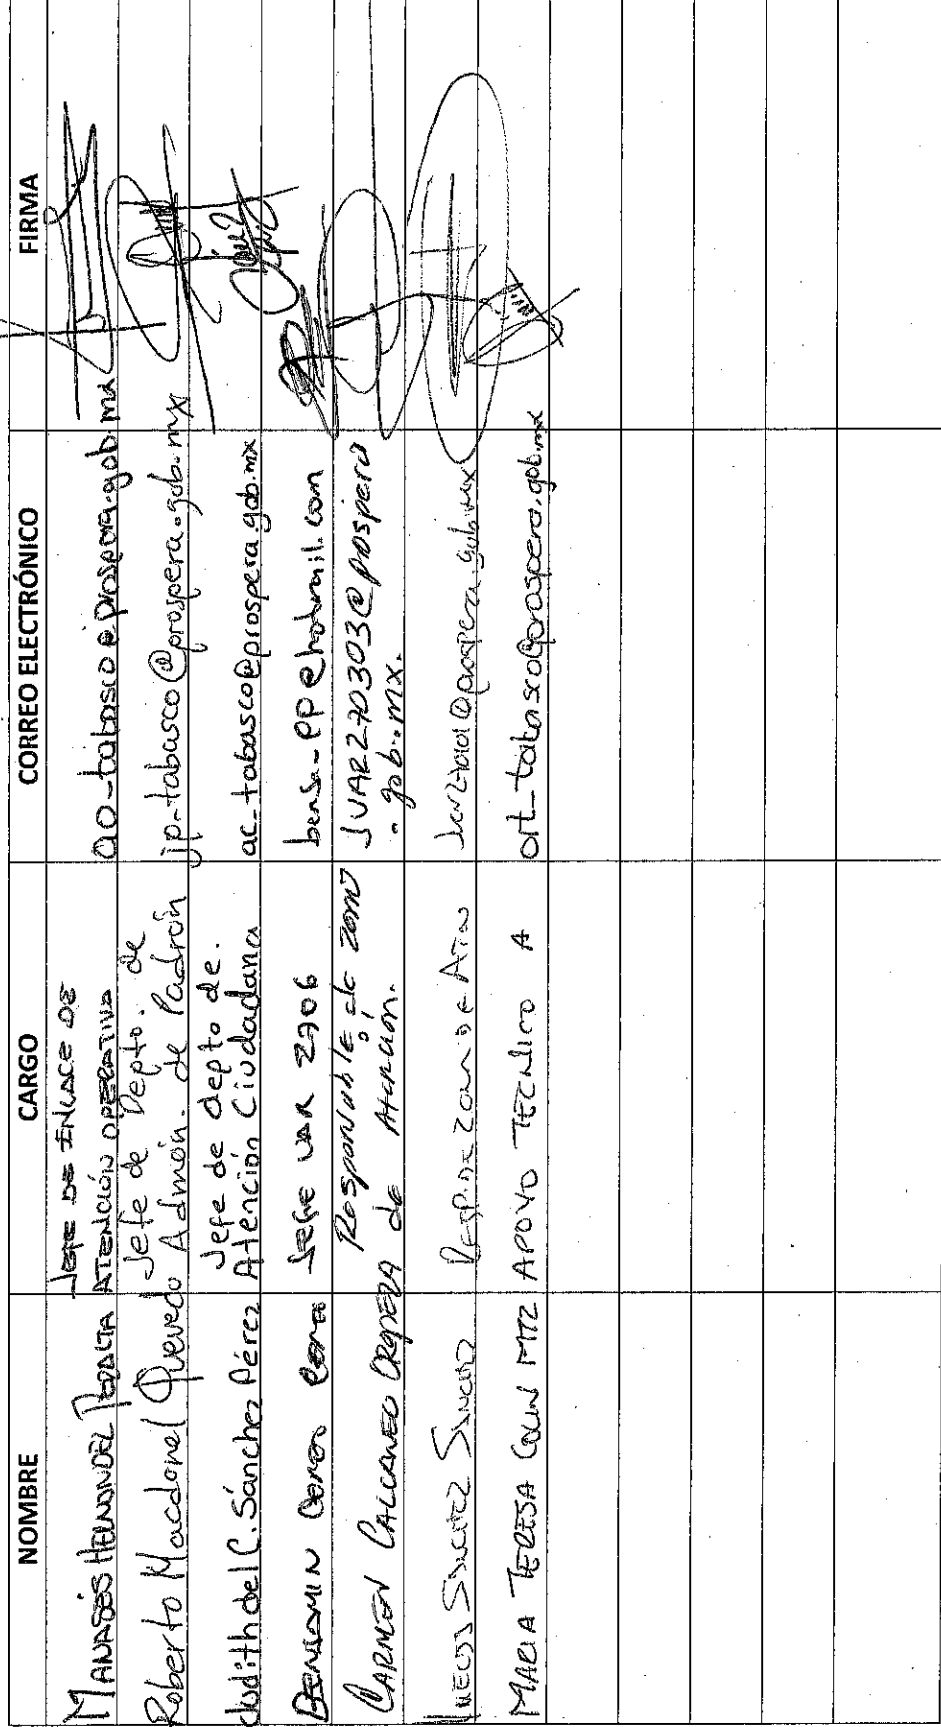 NOMBRE CARGO CORREO ELECTRÓNICO FIRMA
MANASÉS HERNANDEZ PERALTA
JEFE DE ENLACE DE
ATENCIÓN OPERATIVA
ao-tabasco@prospera.gob.mx
Roberto Macdonel Quevedo
Jefe de Depto. de
Admón. de Padrón
jp-tabasco@prospera.gob.mx
Judith del C. Sánchez Pérez
Jefe de depto de.
Atención Ciudadana
ac-tabasco@prospera.gob.mx
BENJAMIN
JEFE UAR 2706
@hotmail.com
CARMEN CALCANEO
Responsable de zona
de Atención.
JUAR270303@prospera
.gob.mx.
SANCHEZ SANCHEZ
@prospera.gob.mx
MARIA TERESA COLIN MTZ
APOYO TECNICO A
ort_tabasco@prospera.gob.mx